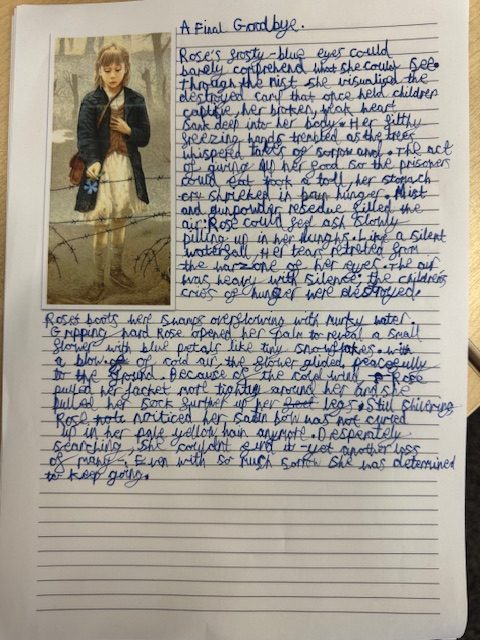 A Final Goodbye.
Rose's frosty-blue eyes could
barely comprehend what she could see.
Through the mist she visualised the
destroyed camp that once held children
captive her broken weak heart
sank deep into her body. Her filthy
freezing hands trembled as the trees
whispered tales of sorrow and. The act
of giving up her food so the prisoners
could eat took a toll her stomach
cry shrieked in pain hunger. Mist
and gunpowder residue filled the
air. Rose could feel ash slowly
pilling up in her lunghs. Like a silent
waterfall Her tears retreted from
the warzone of her eyes. The air
was heavy with silence: the childrens
cries of hunger were destroyed.
Roses boots were swamps overflowing with murky water.
Gripping hard Rose opened her palm to reveal a small
flower with blue petals like tiny snowflakes. With
a blow of cold air the flower glided peacefully
to the ground. Because of the cold wind Rose
pulled her Jacket more tightly around her and she
pulled her sock further up her legs. Still shivering
Rose noticed her satin bow was not curled
up in her pale yellow hair anymore. Desperately
searching, she couldnt find it - yet another loss
of many. Even with so much sorrow she was determined
to keep going.